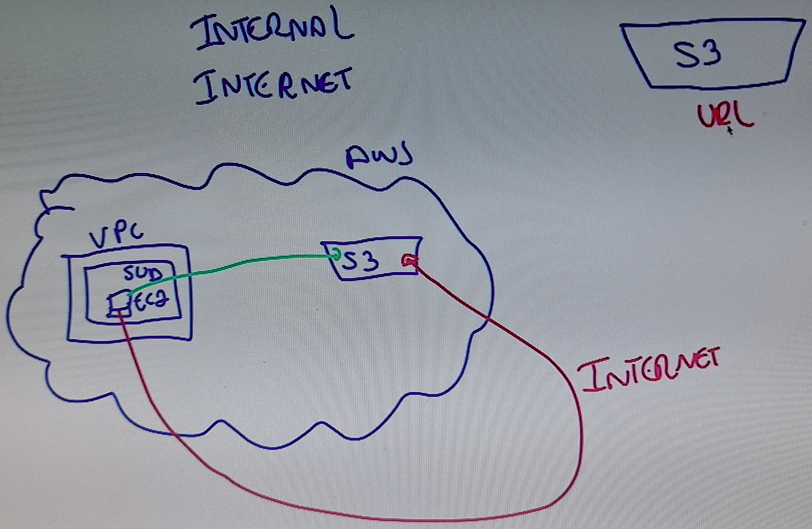 INTERNAL
INTERNET
S3
URL
AWS
VPC
SUB
EC2
S3
INTERNET